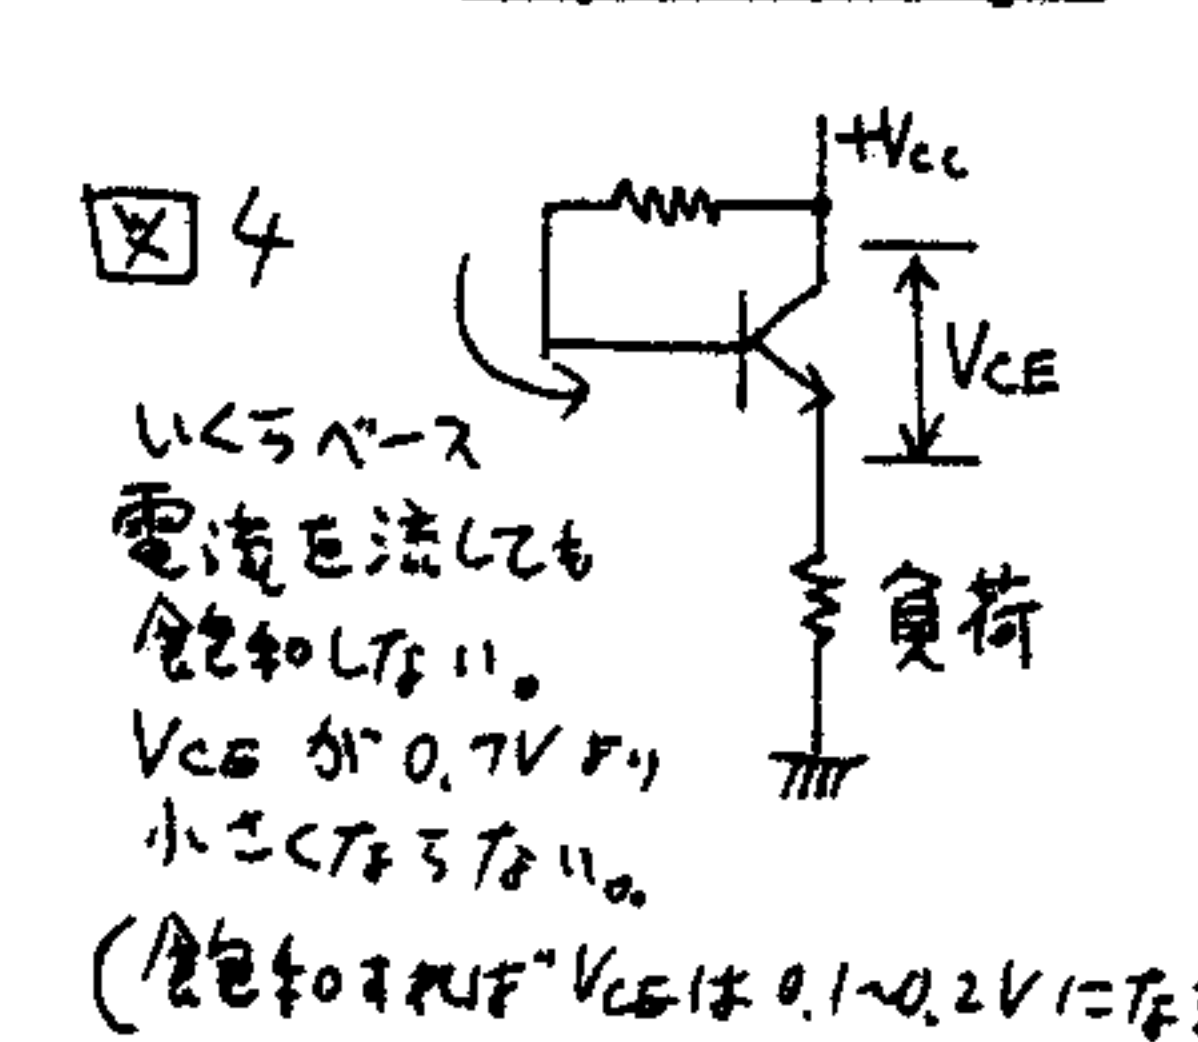 図4
+Vcc
VCE
負荷
いくらベース
電流を流しても
飽和しない。
VCE が 0.7V より
小さくならない。
(飽和すれば VCEは 0.1~0.2V になる